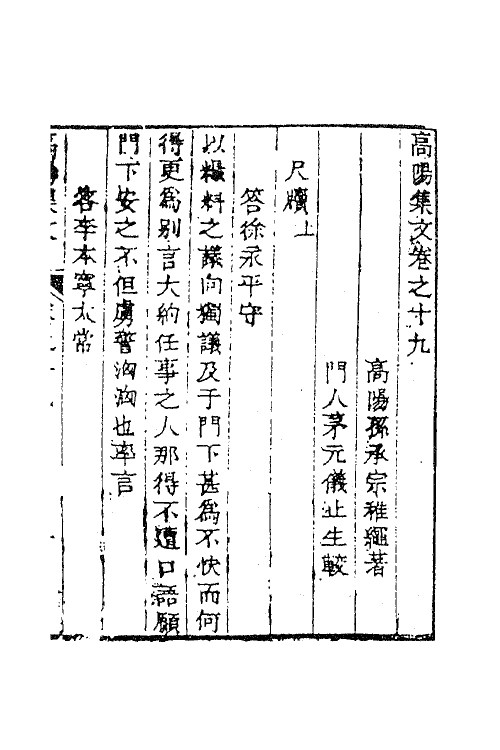 高陽集文卷之十九
高陽孫承宗稚繩著
門人茅元儀止生較
尺牘上
答徐永平守
以糧料之議向獨議及于門下甚為不快而何
得更為別言大約任事之人那得不遭口語願
門下安之不但虜警洶洶也率言
答李本寧太常